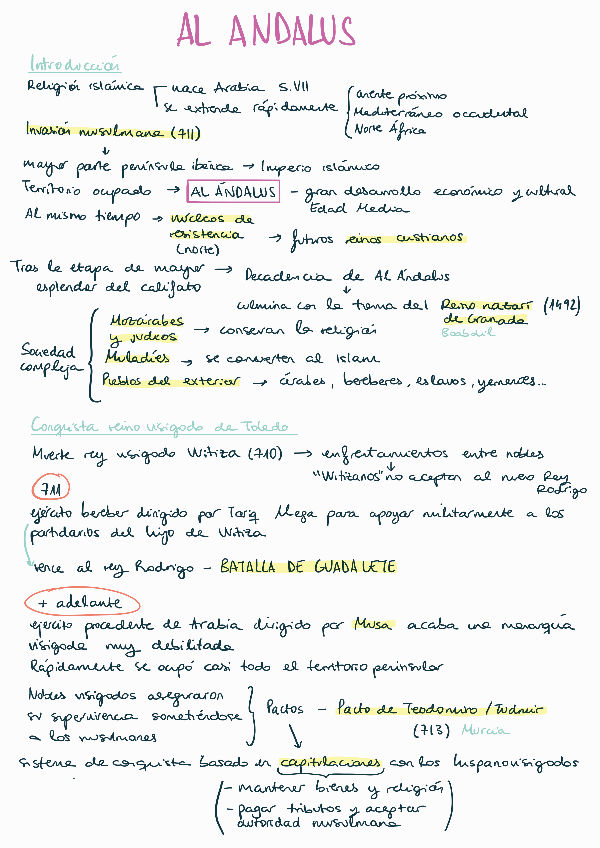 AL ANDALUS
Introducción
Religión islámica nace Arabia S.VII
se extiende rápidamente
oriente próximo
Mediterráneo occidental
Norte África
Invasión musulmana (711)
↓
mayor parte península ibérica → Imperio islámico
Territorio ocupado → AL ÁNDALUS - gran desarrollo económico y cultural
Edad Media
Al mismo tiempo → núcleos de
resistencia → futuros reinos cristianos
(norte)
Tras la etapa de mayor → Decadencia de Al Ándalus
esplendor del califato
↓
culmina con la toma del Reino nazarí (1492)
de Granada
Boabdil
Sociedad
compleja
Mozárabes
y judíos → conservan la religión
Muladíes → se convierten al Islam
Pueblos del exterior → árabes, bereberes, eslavos, yemeníes...
Conquista reino visigodo de Toledo
Muerte rey visigodo Witiza (710) → enfrentamientos entre nobles
↓
"Witizanos" no aceptan al nuevo Rey
Rodrigo
711
ejército bereber dirigido por Tariq llega para apoyar militarmente a los
partidarios del hijo de Witiza
vence al rey Rodrigo - BATALLA DE GUADALETE
+ adelante
ejército procedente de Arabia dirigido por Musa acaba una monarquía
visigoda muy debilitada
Rápidamente se ocupó casi todo el territorio peninsular
Nobles visigodos aseguraron
su supervivencia sometiéndose
a los musulmanes
Pactos - Pacto de Teodomiro / Tudmir
(713) Murcia
sistema de conquista basado en capitulaciones con los hispanovisigodos
- mantener bienes y religión
- pagar tributos y aceptar
autoridad musulmana